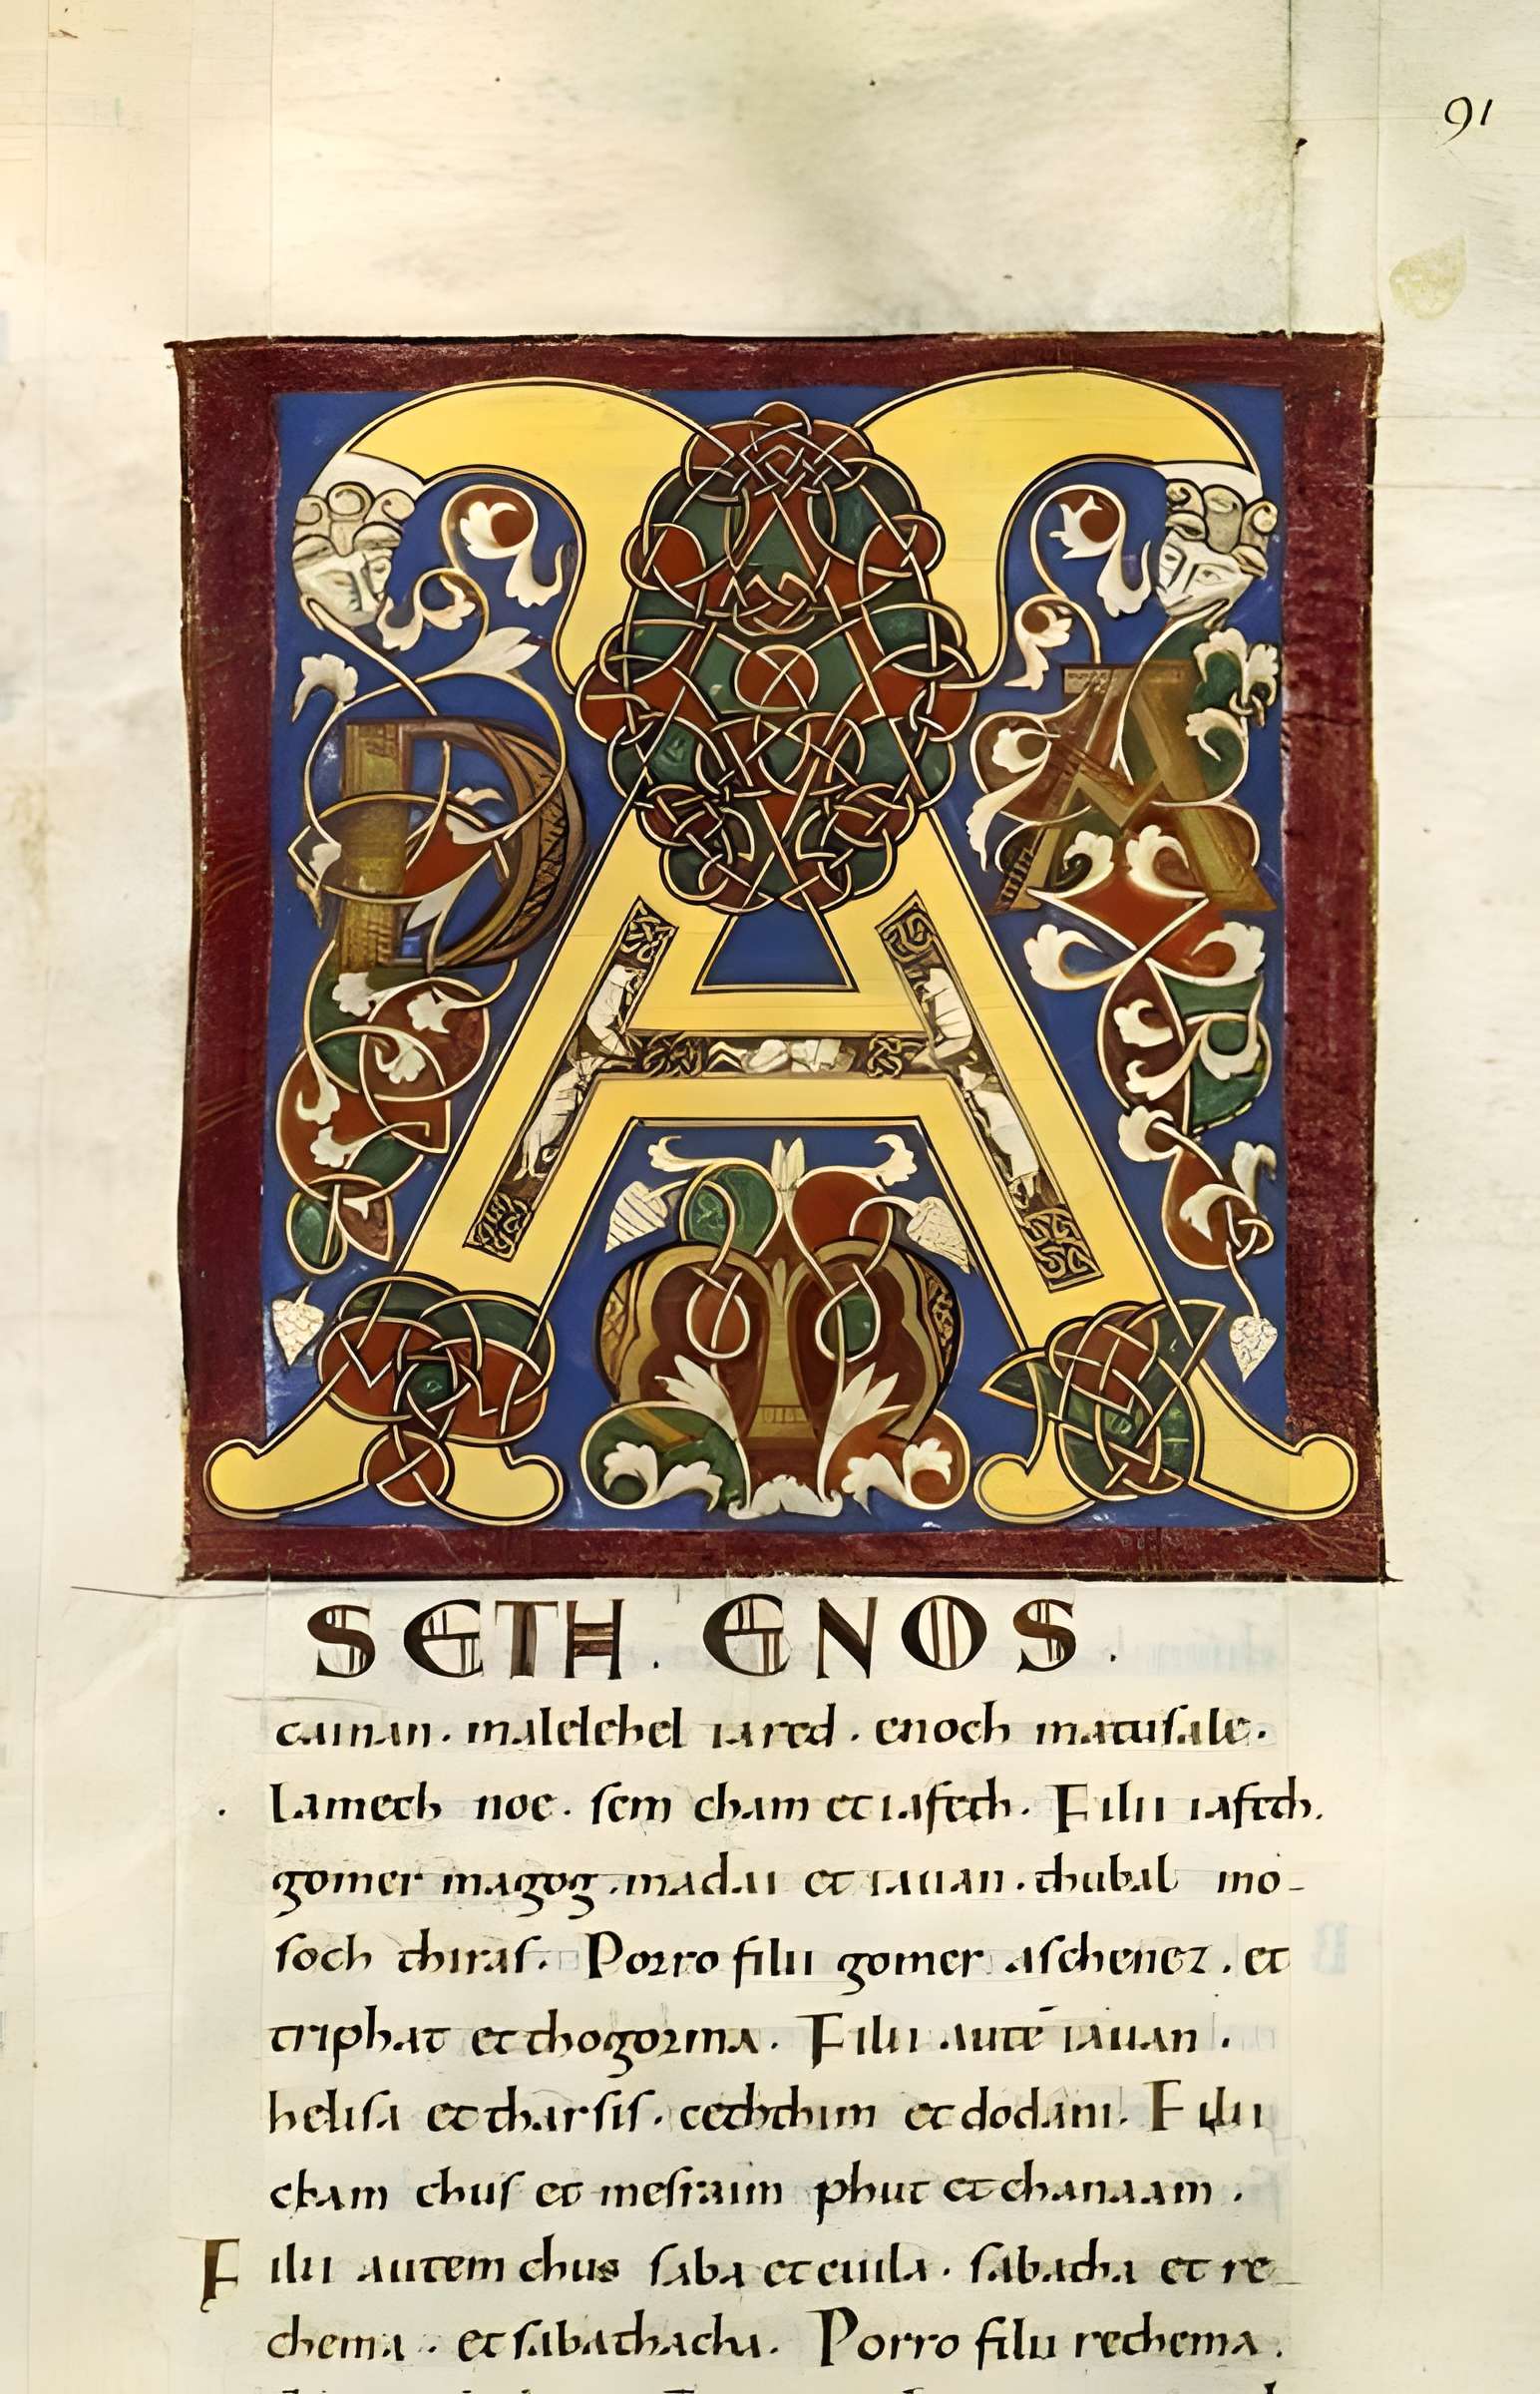 91
ADAM
SETH . ENOS .
cainan . malelehel iared . enoch matusale .
Lamech noe . sem cham et iafeth . Filii iafeth .
gomer magog . madai et iauan . thubal mo-
soch thiras . Porro filii gomer . aschenez . et
triphat et thogorma . Filii autē iauan .
helisa et tharsis . cethchim et dodani . Filii
cham chus et mesraim phut et chanaam .
Filii autem chus saba et euila . sabatha et re-
chema . et sabathacha . Porro filii rechema .